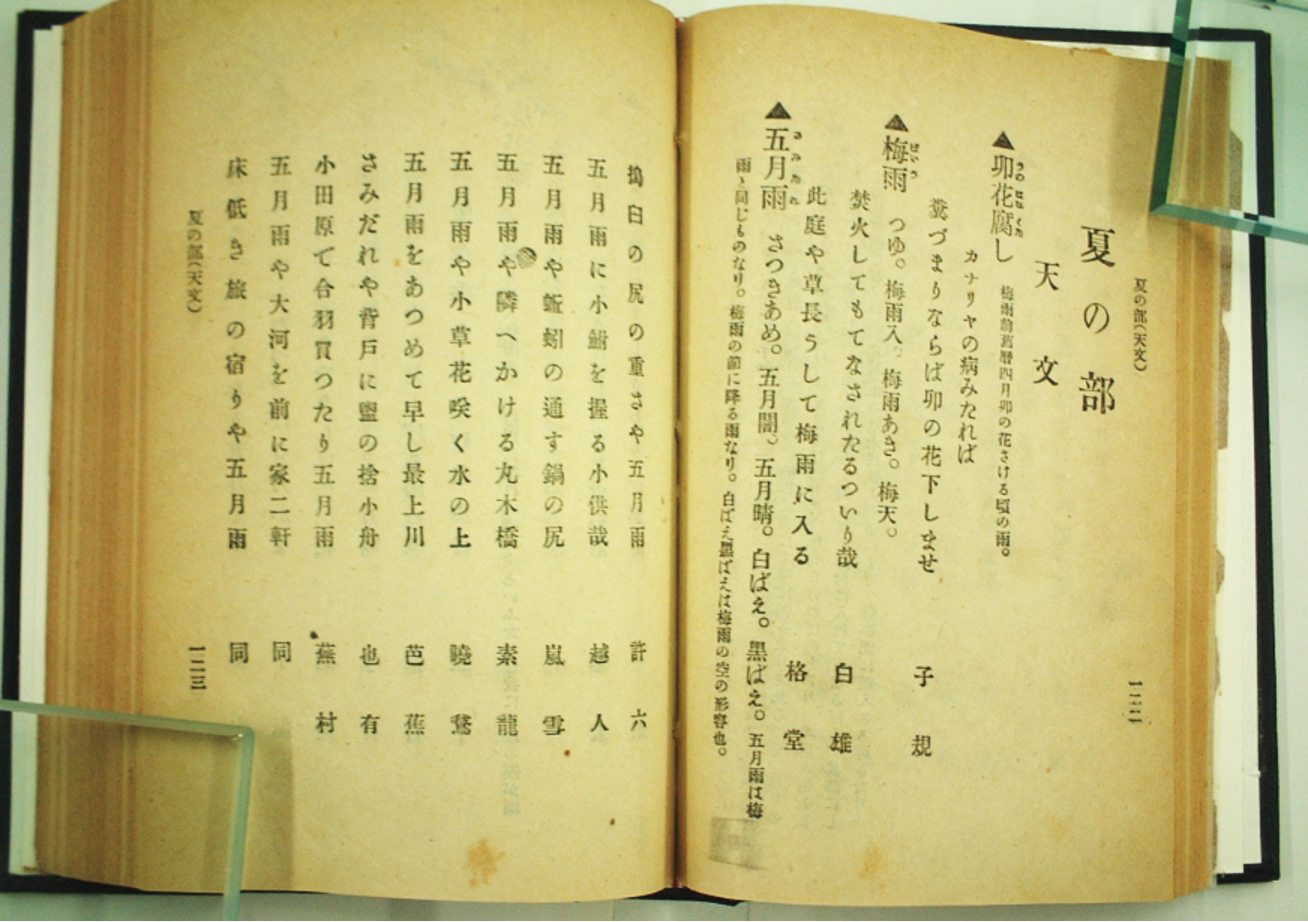 夏の部(天文)
一二二
夏の部
天文
▲卯花腐し 梅雨前舊暦四月卯の花さける頃の雨。
カナリヤの病みたれば
糞づまりならば卯の花下しませ 子規
▲梅雨 つゆ。梅雨入。梅雨あき。梅天。
焚火してもてなされたるついり哉 白雄
此庭や草長うして梅雨に入る 格堂
▲五月雨 さつきあめ。五月闇。五月晴。白ばえ。黒ばえ。五月雨は梅
雨と同じものなり。梅雨の節に降る雨なり。白ばえ黒ばえは梅雨の空の形容也。
搗臼の尻の重さや五月雨 許六
五月雨に小鮒を握る小供哉 越人
五月雨や蚯蚓の通す鍋の尻 嵐雪
五月雨や隣へかける丸木橋 素龍
五月雨や小草花咲く水の上 曉鵞
五月雨をあつめて早し最上川 芭蕉
さみだれや背戸に盥の捨小舟 也有
小田原で合羽買つたり五月雨 蕪村
五月雨や大河を前に家二軒 同
床低き旅の宿りや五月雨 同
夏の部(天文)
一二三